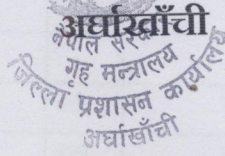 अर्घाखाँची
नेपाल सरकार
गृह मन्त्रालय
जिल्ला प्रशासन कार्यालय
अर्घाखाँची